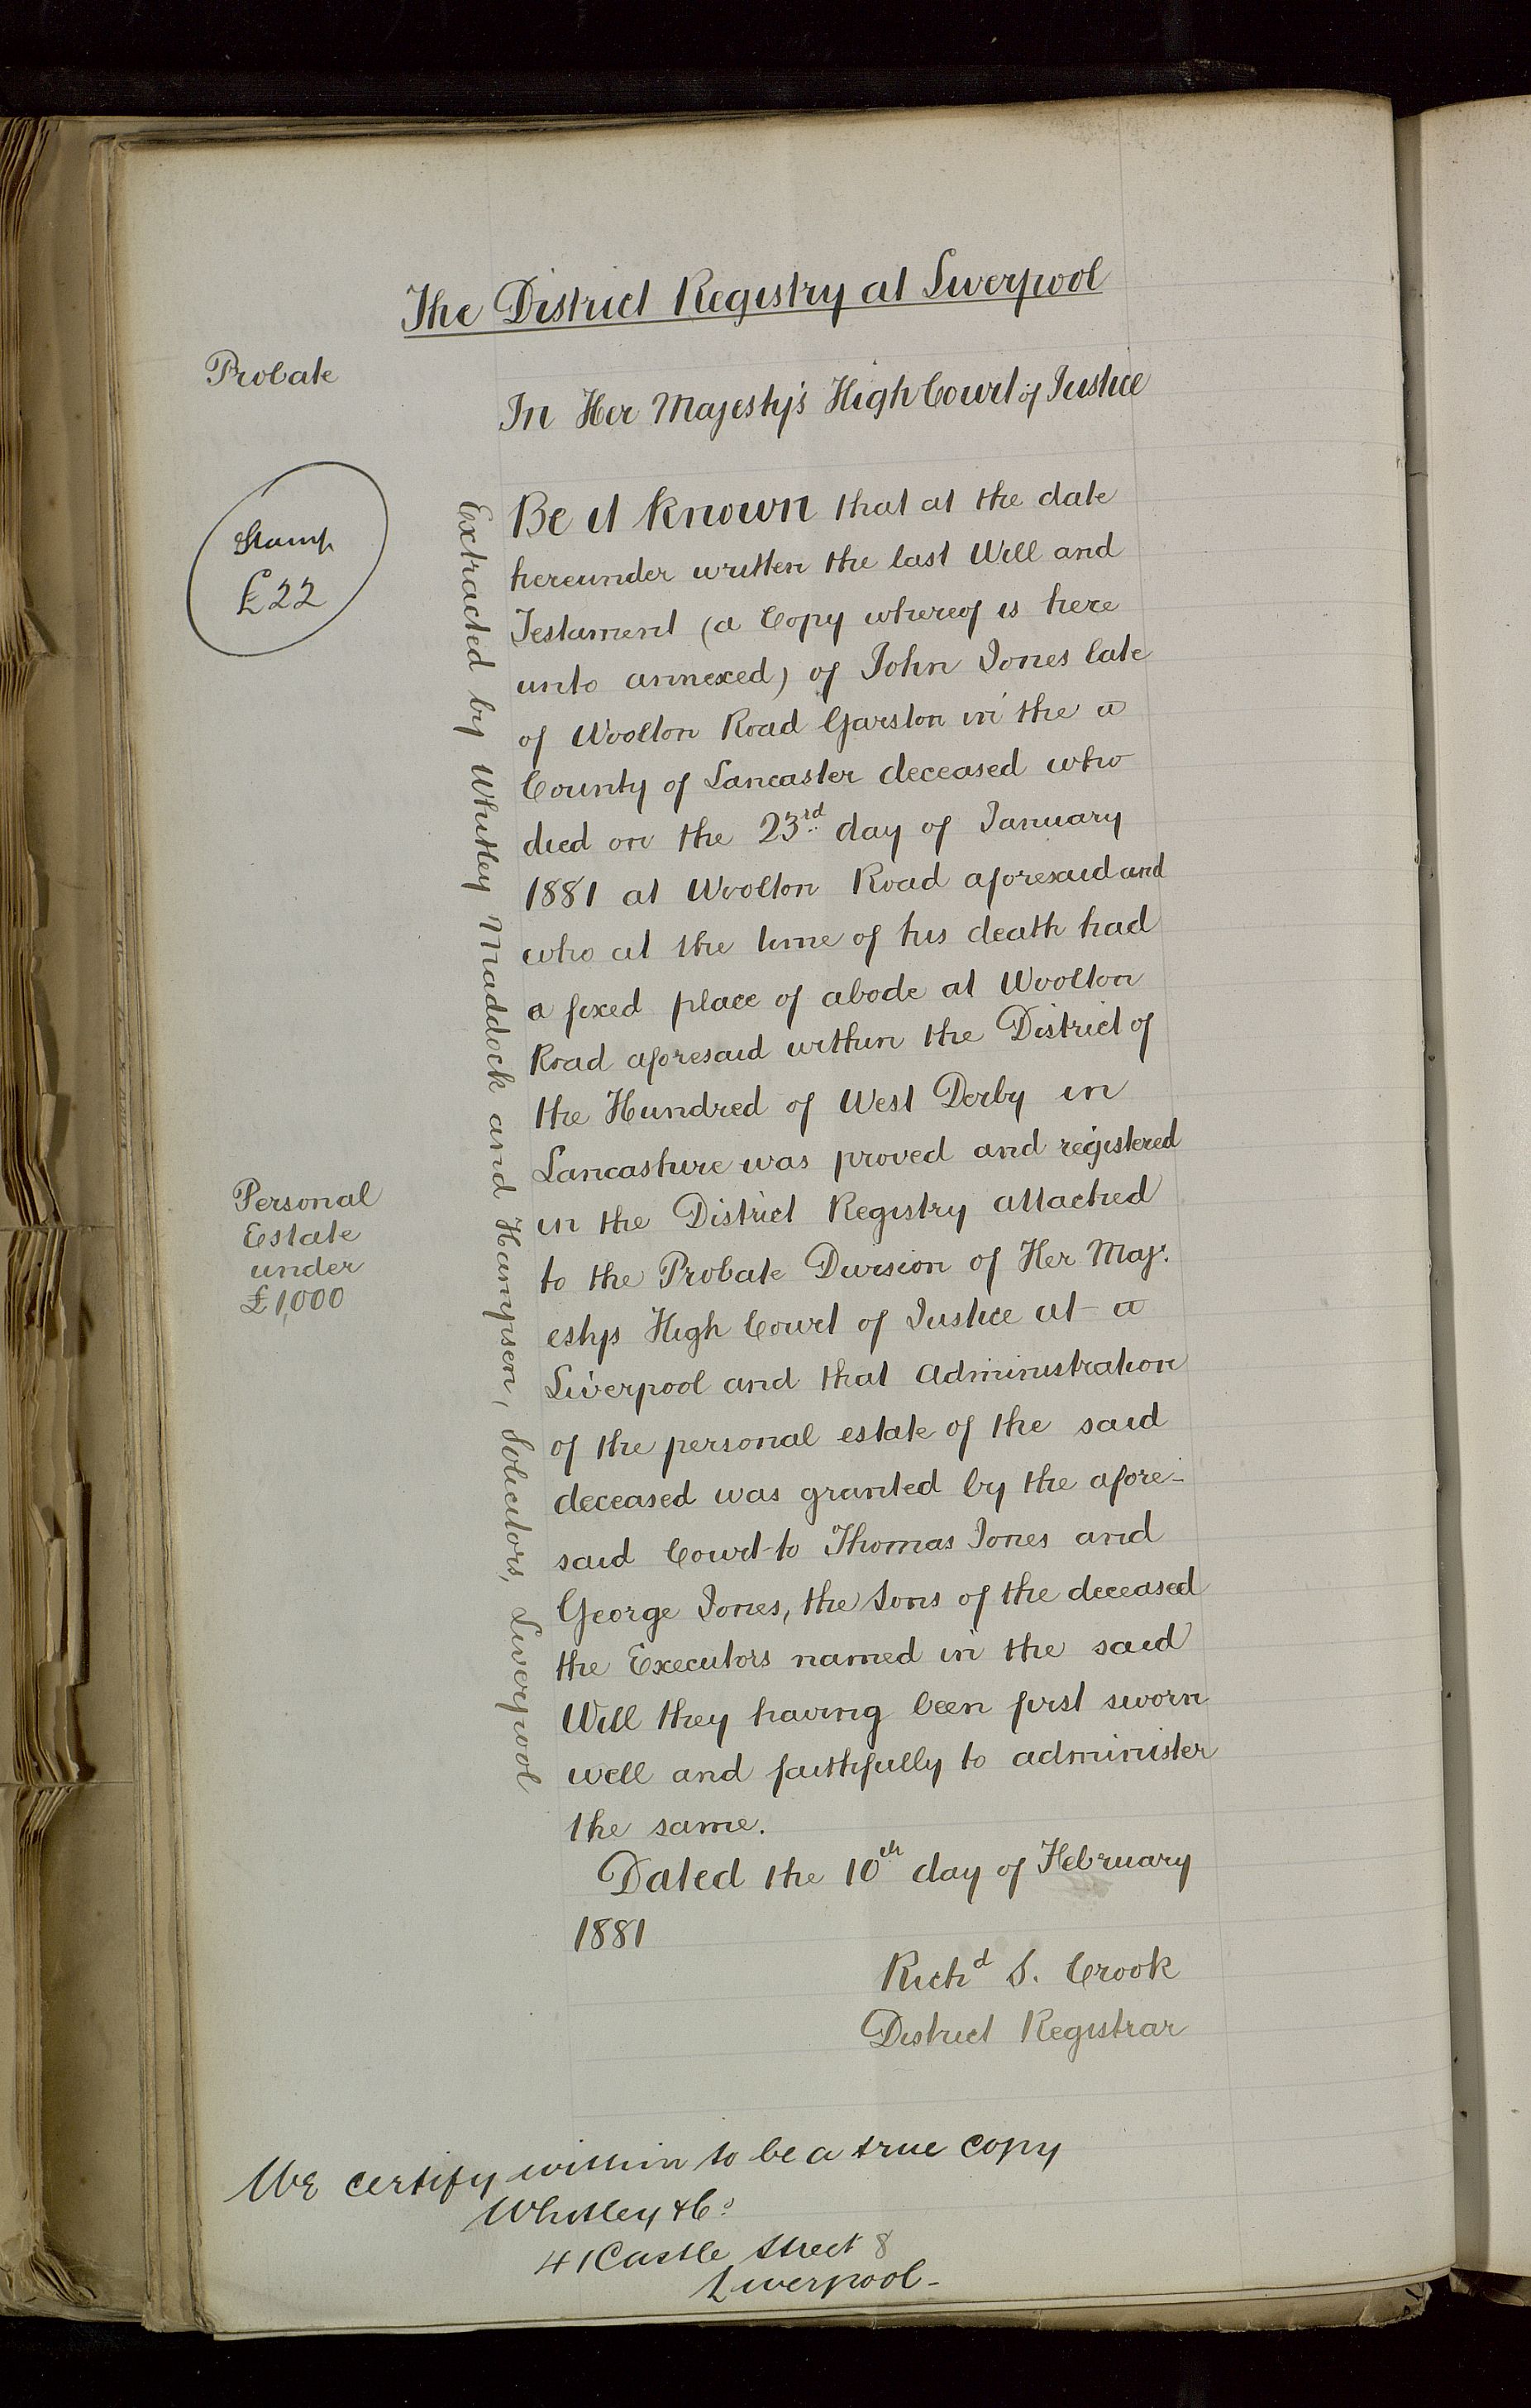 The District Registry at Liverpool
Probate
In Her Majesty's High Court of Justice
Stamp
£22
Extracted by Whitley Maddock and Hampson, Solicitors, Liverpool
Be it known that at the date
hereunder written the last Will and
Testament (a Copy whereof is here
unto annexed) of John Jones late
of Woolton Road Garston in the
County of Lancaster deceased who
died on the 23rd day of January
1881 at Woolton Road aforesaid and
who at the time of his death had
a fixed place of abode at Woolton
Road aforesaid within the District of
the Hundred of West Derby in
Lancashire was proved and registered
in the District Registry attached
to the Probate Division of Her Maj-
estys High Court of Justice at
Liverpool and that Administration
of the personal estate of the said
deceased was granted by the afore-
said Court to Thomas Jones and
George Jones, the Sons of the deceased
the Executors named in the said
Will they having been first sworn
well and faithfully to administer
the same.
Personal
Estate
under
£1,000
Dated the 10th day of February
1881
Richd S. Crook
District Registrar
We certify within to be a true copy
Whitley & Co.
41 Castle Street 8
Liverpool-